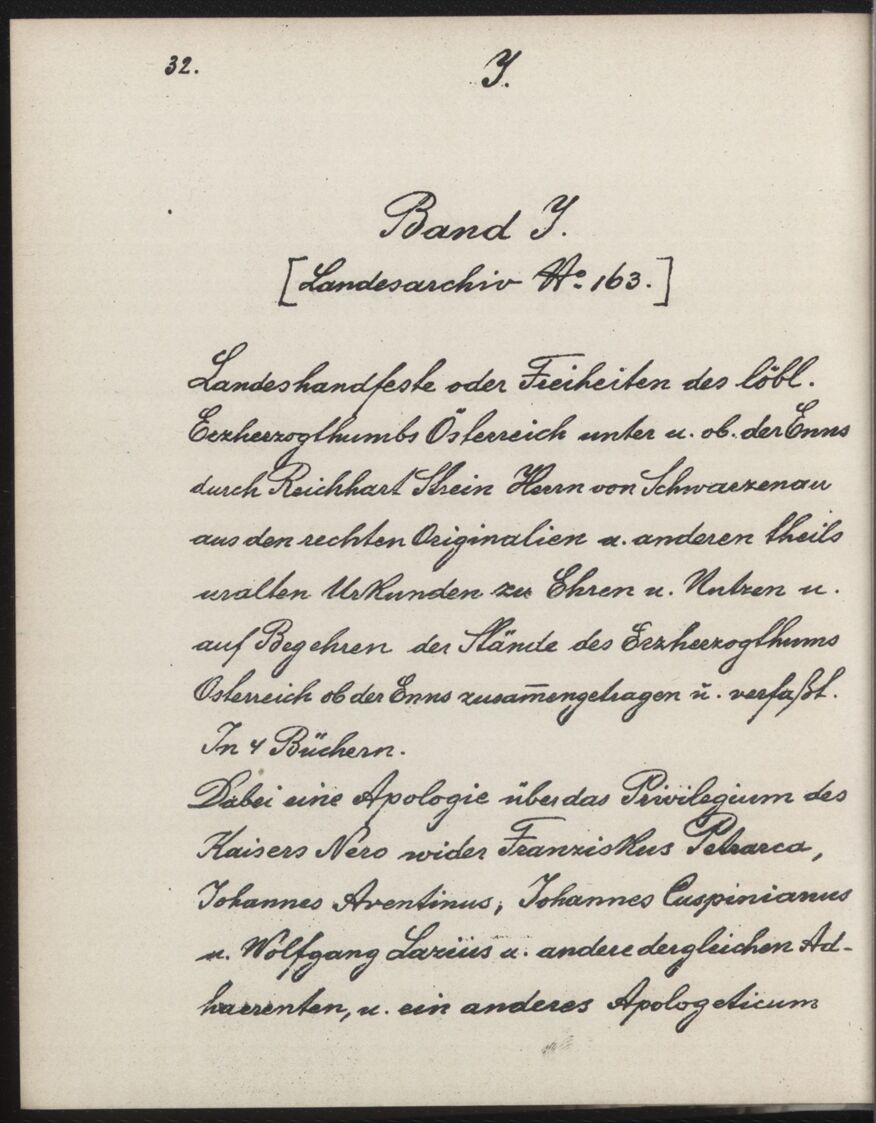 32.
Y.
Band Y.
[Landesarchiv No. 163.]
Landeshandfeste oder Freiheiten des löbl.
Erzherzogthumbs Österreich unter u. ob. der Enns
durch Reichhart Strein Herrn von Schwarzenau
aus den rechten Originalien u. anderen theils
uralten Urkunden zu Ehren u. Nutzen u.
auf Begehren der Stände des Erzherzogthums
Österreich ob der Enns zusam̅engetragen u. verfaßt.
In 4 Büchern.
Dabei eine Apologie über das Privilegium des
Kaisers Nero wider Franziskus Petrarca,
Johannes Aventinus, Johannes Cuspinianus
u. Wolfgang Lazius u. andere dergleichen Ad-
haerenten, u. ein anderes Apologeticum